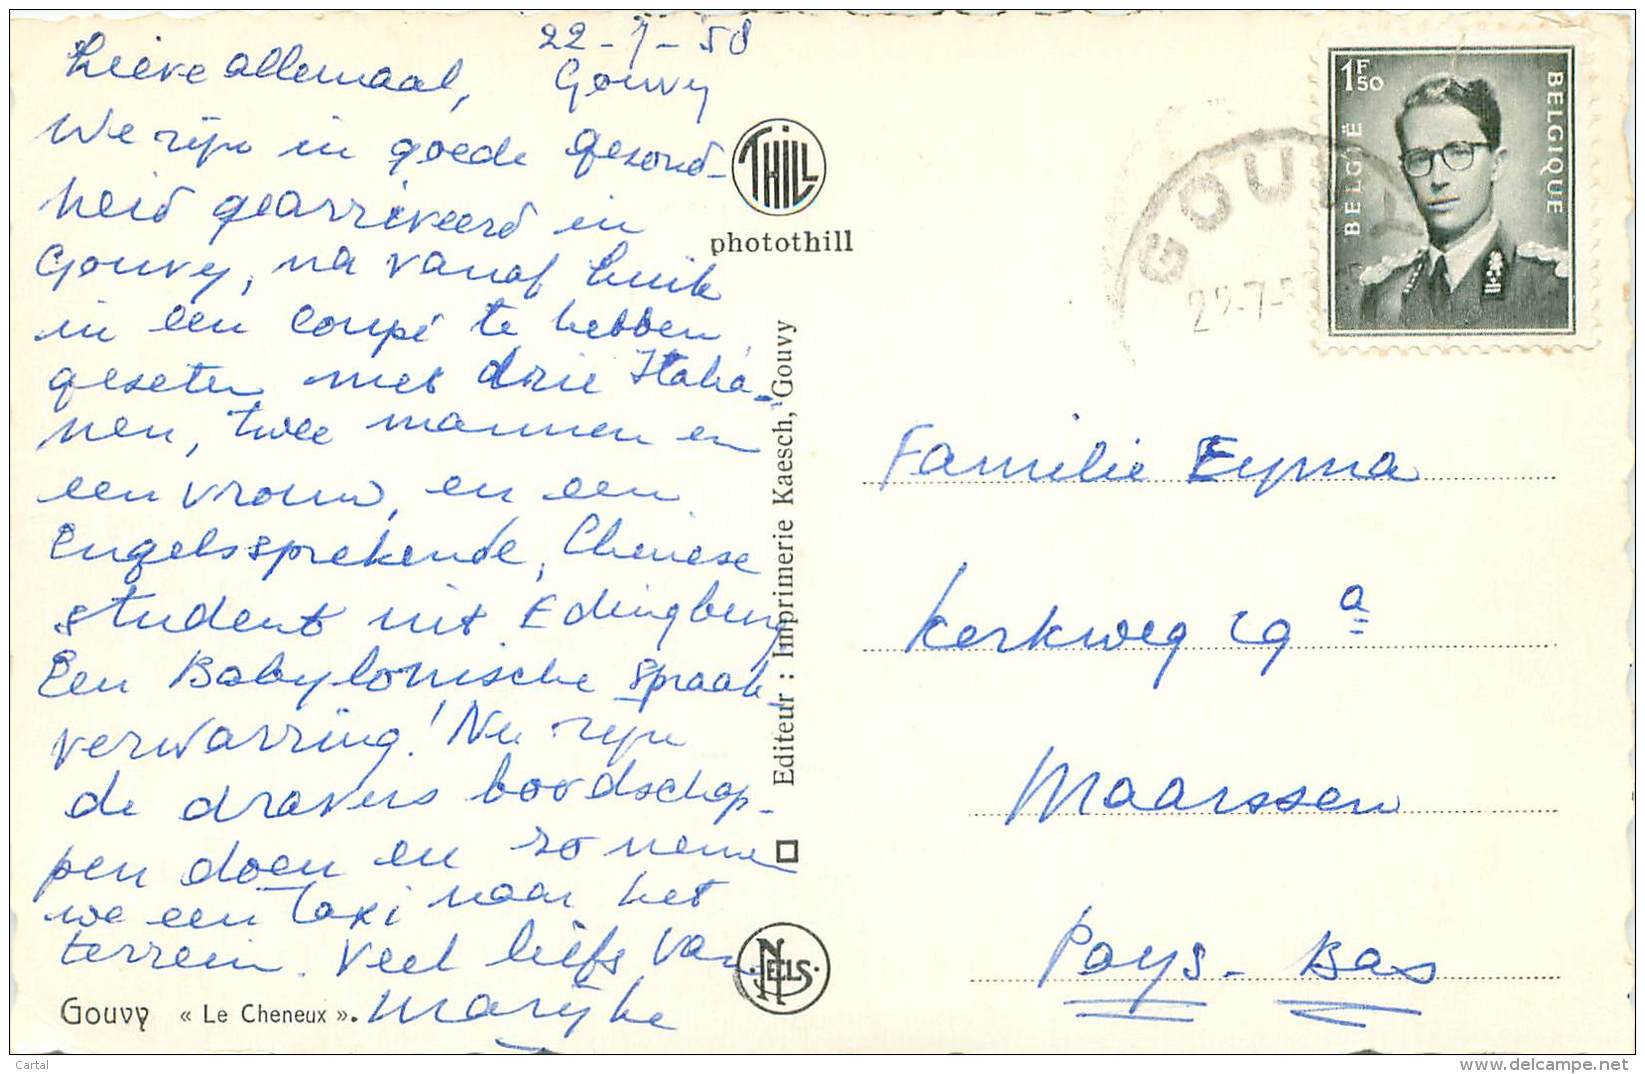 22-7-58
Lieve allemaal, Gouvy
We zijn in goede gezond-
heid gearriveerd in
Gouvy, na vanaf Luik
in een coupé te hebben
gezeten met drie Italia-
nen, twee mannen en
een vrouw, en een
Engelssprekende, Chinese
student uit Edingburg
Een Babylonische spraak-
verwarring! Nu zijn
de dravers boodschap-
pen doen en zo nemen
we een taxi naar het
terrein. Veel liefs van
Marijke
Gouvy « Le Cheneux ».
THILL
photothill
Editeur : Imprimerie Kaesch, Gouvy
NELS
1F50
BELGIË
BELGIQUE
GOUVY
22-7-5
Familie Eyma
Kerkweg 29 a
Maarssen
Pays-Bas
Cartal
www.delcampe.net